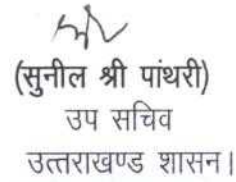 (सुनील श्री पांथरी)
उप सचिव
उत्तराखण्ड शासन।